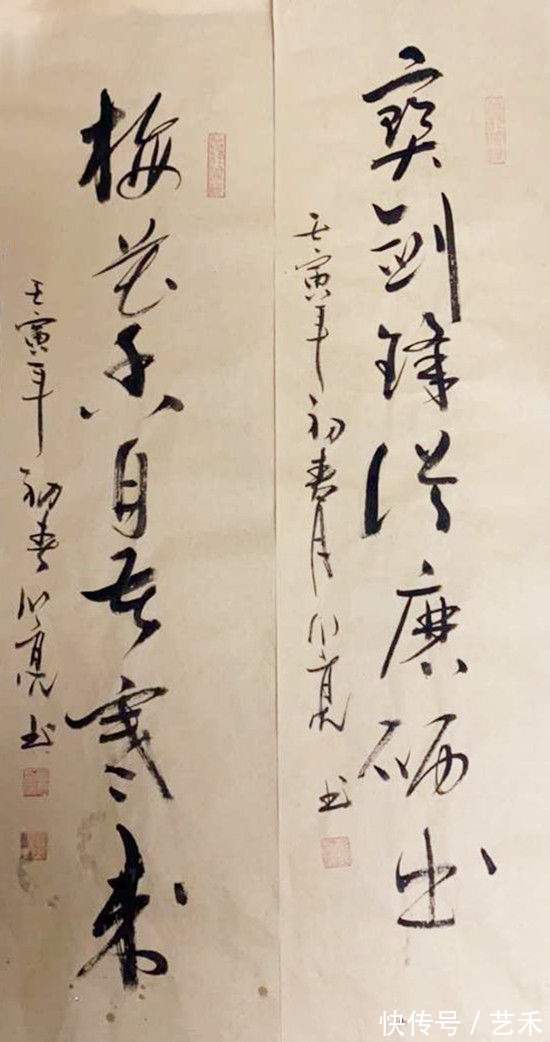 寶劍鋒從磨礪出
壬寅年初春月小亮书
梅花香自苦寒來
壬寅年初春小亮书
快传号／艺禾